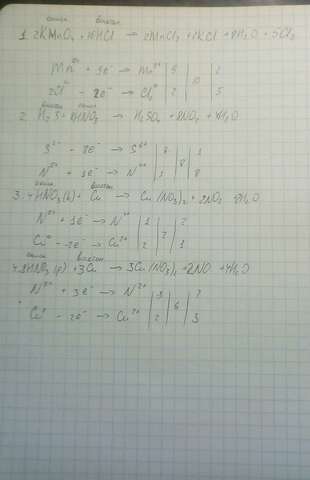 окисл. восстан.
1. 2KMnO₄ + 16HCl → 2MnCl₂ + 2KCl + 8H₂O + 5Cl₂
Mn⁷⁺ + 5e⁻ → Mn²⁺ | 5 | 10 | 2
2Cl⁻ - 2e⁻ → Cl₂⁰ | 2 | | 5
восстан. окисл.
2. H₂S + 8HNO₃ → H₂SO₄ + 8NO₂ + 4H₂O
S²⁻ - 8e⁻ → S⁶⁺ | 8 | 8 | 1
N⁵⁺ + 1e⁻ → N⁴⁺ | 1 | | 8
окисл. восстан.
3. 4HNO₃(k) + Cu → Cu(NO₃)₂ + 2NO₂ 2H₂O
N⁵⁺ + 1e⁻ → N⁴⁺ | 1 | 2 | 2
Cu⁰ - 2e⁻ → Cu²⁺ | 2 | | 1
окисл. восстан.
4. 8HNO₃(p) + 3Cu → 3Cu(NO₃)₂ + 2NO + 4H₂O
N⁵⁺ + 3e⁻ → N²⁺ | 3 | 6 | 2
Cu⁰ - 2e⁻ → Cu²⁺ | 2 | | 3